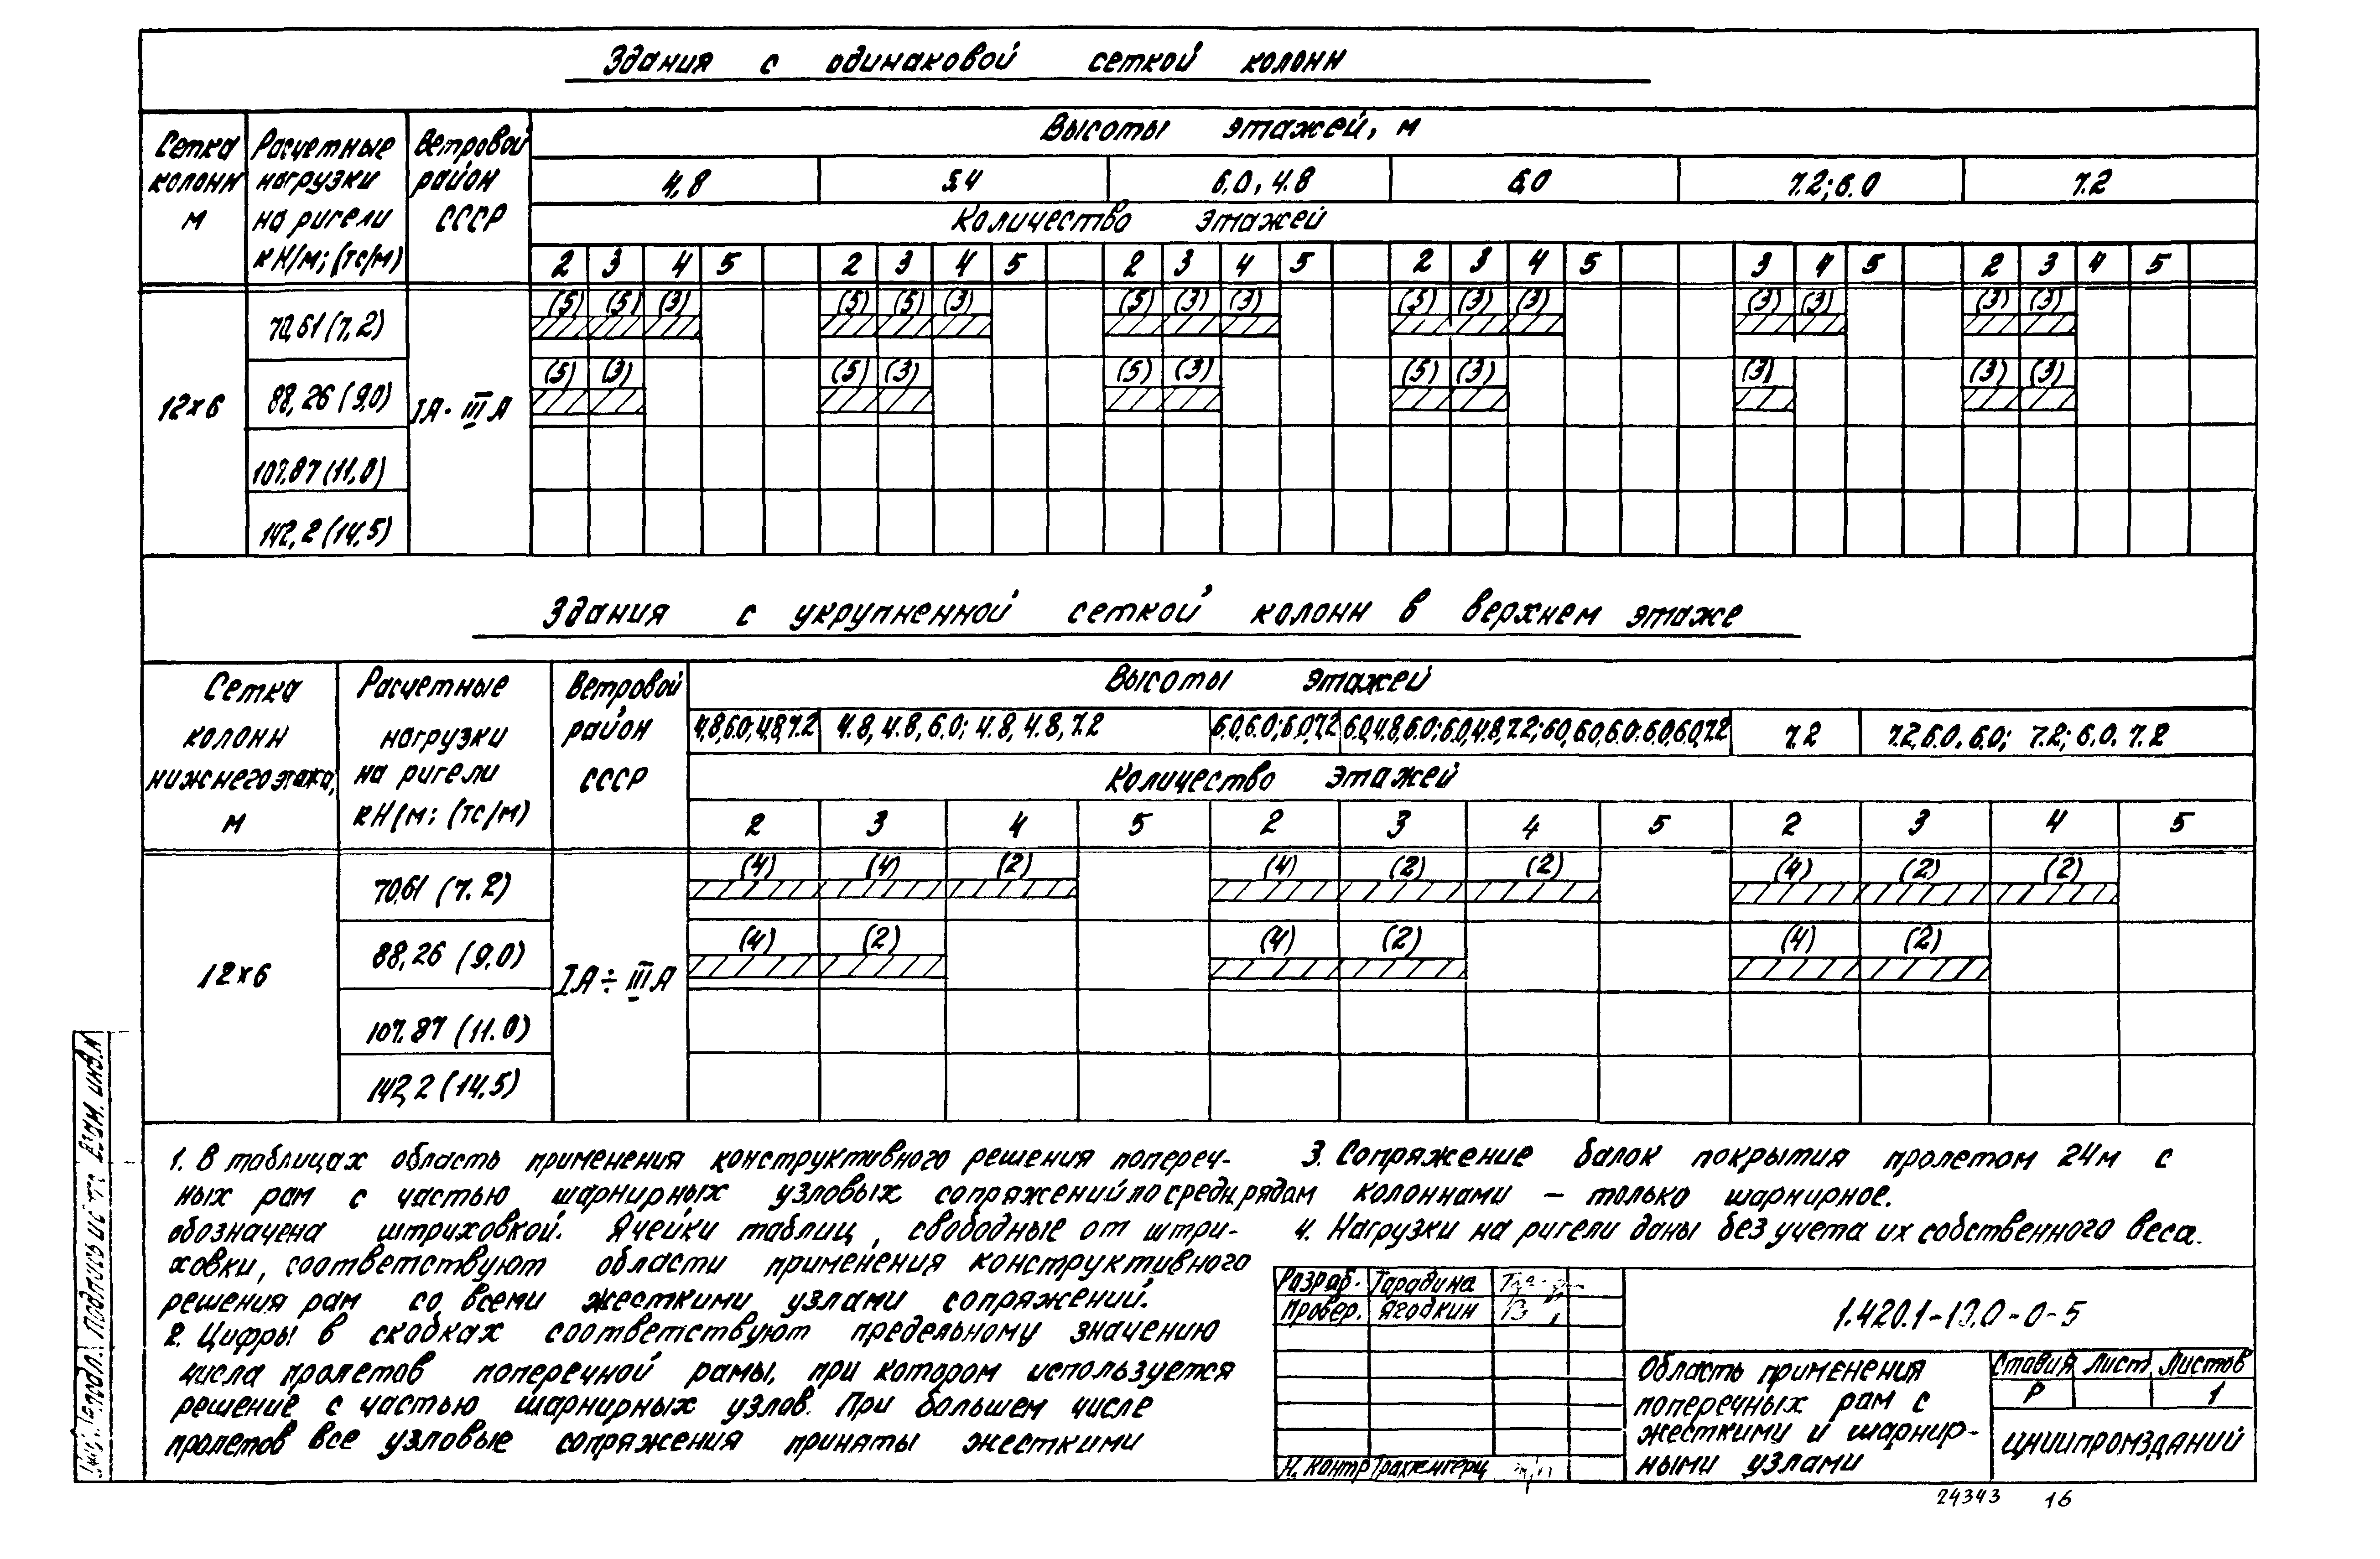 Здания с одинаковой сеткой колонн
Сетка колонн м
Расчетные нагрузки на ригели кН/м; (тс/м)
Ветровой район СССР
Высоты этажей, м
4,8 5.4 6.0, 4.8 6,0 7.2; 6.0 7.2
Количество этажей
2 3 4 5 2 3 4 5 2 3 4 5 2 3 4 5 3 4 5 2 3 4 5
12×6
IA÷IIIA
70,61 (7,2) (5) (5) (3) (5) (5) (3) (5) (3) (3) (5) (3) (3) (3) (3) (3) (3)
88,26 (9,0) (5) (3) (5) (3) (5) (3) (5) (3) (3) (3) (3)
107.87 (11,0)
142,2 (14,5)
Здания с укрупненной сеткой колонн в верхнем этаже
Сетка колонн нижнего этажа, м
Расчетные нагрузки на ригели кН/м; (тс/м)
Ветровой район СССР
Высоты этажей
4,8,6.0; 4,8,7.2 4.8, 4.8, 6.0; 4.8, 4.8, 7.2 6.0,6.0; 6.0,7.2 6.0,4.8,6.0; 6.0,4.8,7.2; 6.0,6.0,6.0; 6.0,6.0,7.2 7.2 7.2, 6.0, 6.0; 7.2; 6.0, 7.2
Количество этажей
2 3 4 5 2 3 4 5 2 3 4 5
12×6
IA÷IIIA
70,61 (7.2) (4) (4) (2) (4) (2) (2) (4) (2) (2)
88,26 (9,0) (4) (2) (4) (2) (4) (2)
107.87 (11.0)
142,2 (14.5)
1. В таблицах область применения конструктивного решения попереч-
ных рам с частью шарнирных узловых сопряжений по средн. рядам
обозначена штриховкой. Ячейки таблиц, свободные от штри-
ховки, соответствуют области применения конструктивного
решения рам со всеми жесткими узлами сопряжений.
2. Цифры в скобках соответствуют предельному значению
числа пролетов поперечной рамы, при котором используется
решение с частью шарнирных узлов. При большем числе
пролетов все узловые сопряжения приняты жесткими
3. Сопряжение балок покрытия пролетом 24м с
колоннами – только шарнирное.
4. Нагрузки на ригели даны без учета их собственного веса.
Разраб. Тарадина
Провер. Ягодкин
Н. контр Трахтенгерц
1.420.1-19.0-0-5
Область применения
поперечных рам с
жесткими и шарнир-
ными узлами
Стадия Лист Листов
Р 1
ЦНИИПРОМЗДАНИЙ
подл. Подпись и Взам. инв. №
24343 16